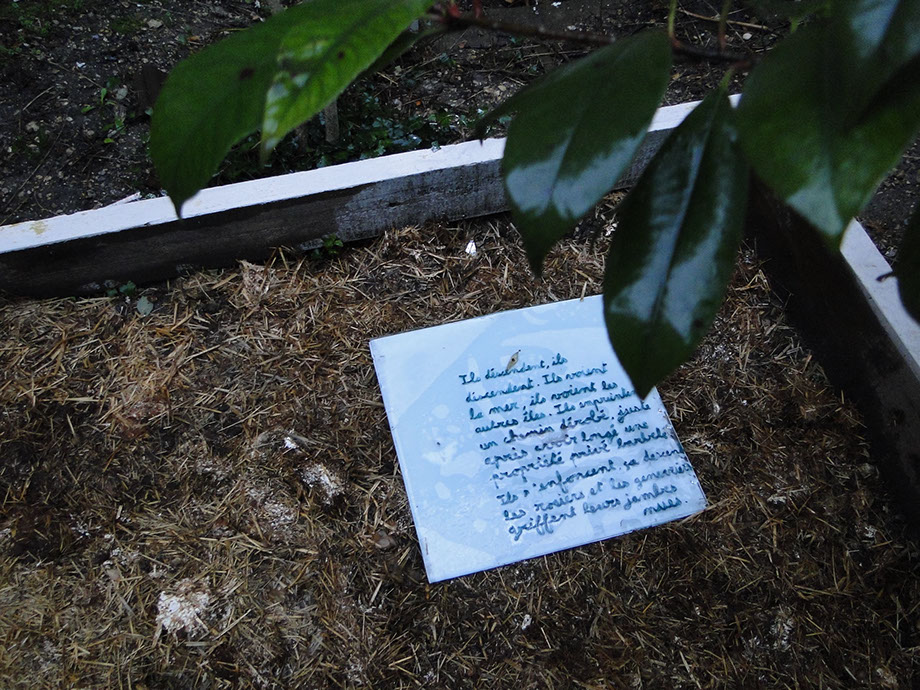 Ils déscendent, ils
déscendent. Ils voient
la mer, ils voient les
autres îles. Ils enpruntent
un chemin dérobé, juste
après avoir longé une
propriété privé barbelé
Ils s'enfoncent, ça
les rosiers et les genevriers
griffent leurs jambes
nues